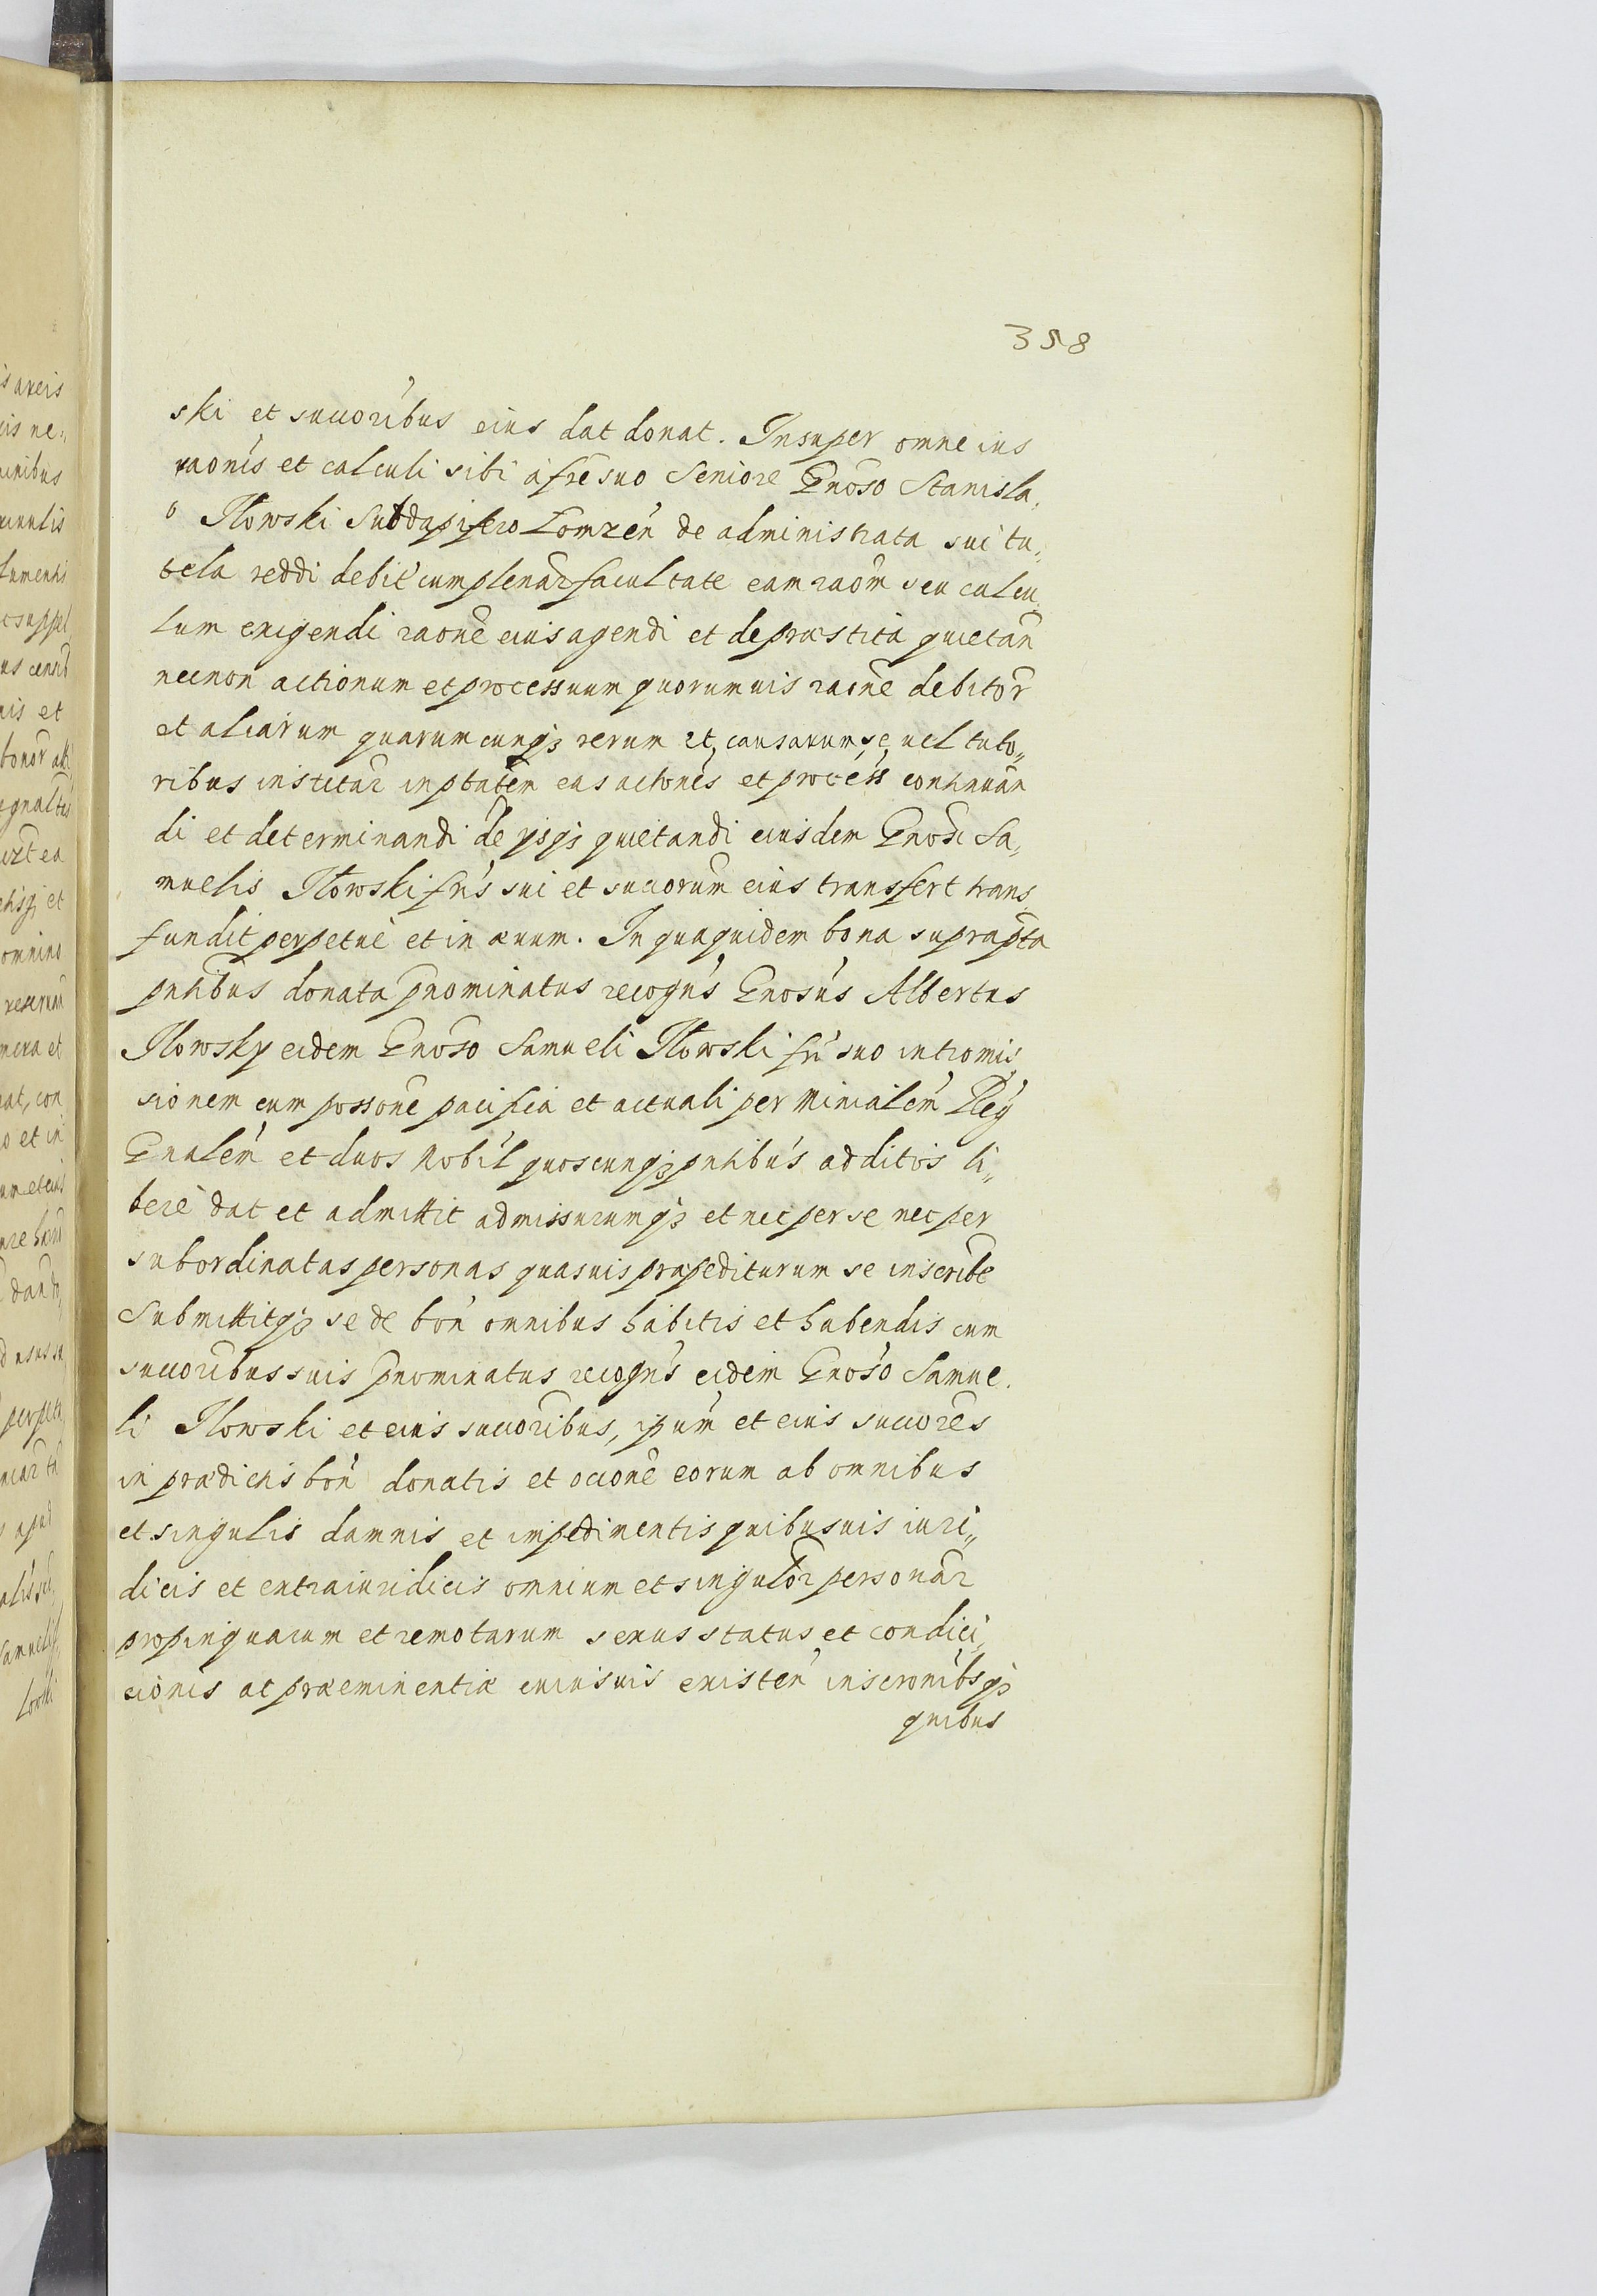 358
ski et succoribus eius dat donat. Insuper omne ius
raonis et calculi sibi à fre suo Seniore Gnoso Stanisla,
o Ilowski Subdapifero Lomzen de administrata sui tu,
tela reddi debit cum plenar facultate eam raom seu calcu,
lum exigendi raone eius agendi et de præstita quietan
necnon actionum et processuum quorumuis raone debitor
et aliarum quarumcunq rerum et causarum se uel tuto,,
ribus institar in ptatem eas actiones et process continuan
di et determinandi de ipsis quietandi eiusdem Gnosi Sa,,
muelis Ilowski fris sui et succorum eius transfert trans,
fundit perpetuè et in æuum. In quaquidem bona suprapta
pntibus donata pnominatus recogns Gnosus Albertus
Ilowsky eidem Gnoso Samueli Ilowski fri suo intromis,
sionem cum possone pacifica et actuali per Minialem Reg
Gnalem et duos Nobil quoscunq pntibus additos li,,
berè dat et admittit admissurumq et nec per se nec per
subordinatas personas quasuis præpediturum se inscribe
Submittitq se de bon omnibus habitis et habendis cum
succoribus suis pnominatus recogns eidem Gnoso Samue,
li Ilowski et eius succoribus, ipsum et eius succores
in prædictis bon donatis et occone eorum ab omnibus
et singulis damnis et impedimentis quibusuis iuri,,
dicis et extraiuridicis omnium et singulor personar
propinquarum et remotarum sexus status et condici,
cionis ac præeminentiæ cuiusuis existen inscronibsq
quibus